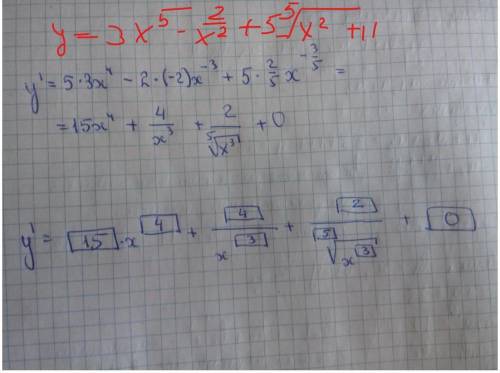 y = 3x⁵ - 2/x² + 5 ⁵√x² + 11
y' = 5·3x⁴ - 2·(-2)x⁻³ + 5·2/5 x^(-3/5) =
= 15x⁴ + 4/x³ + 2/⁵√x³ + 0
y' = 15·x⁴ + 4/x³ + 2/⁵√x³ + 0